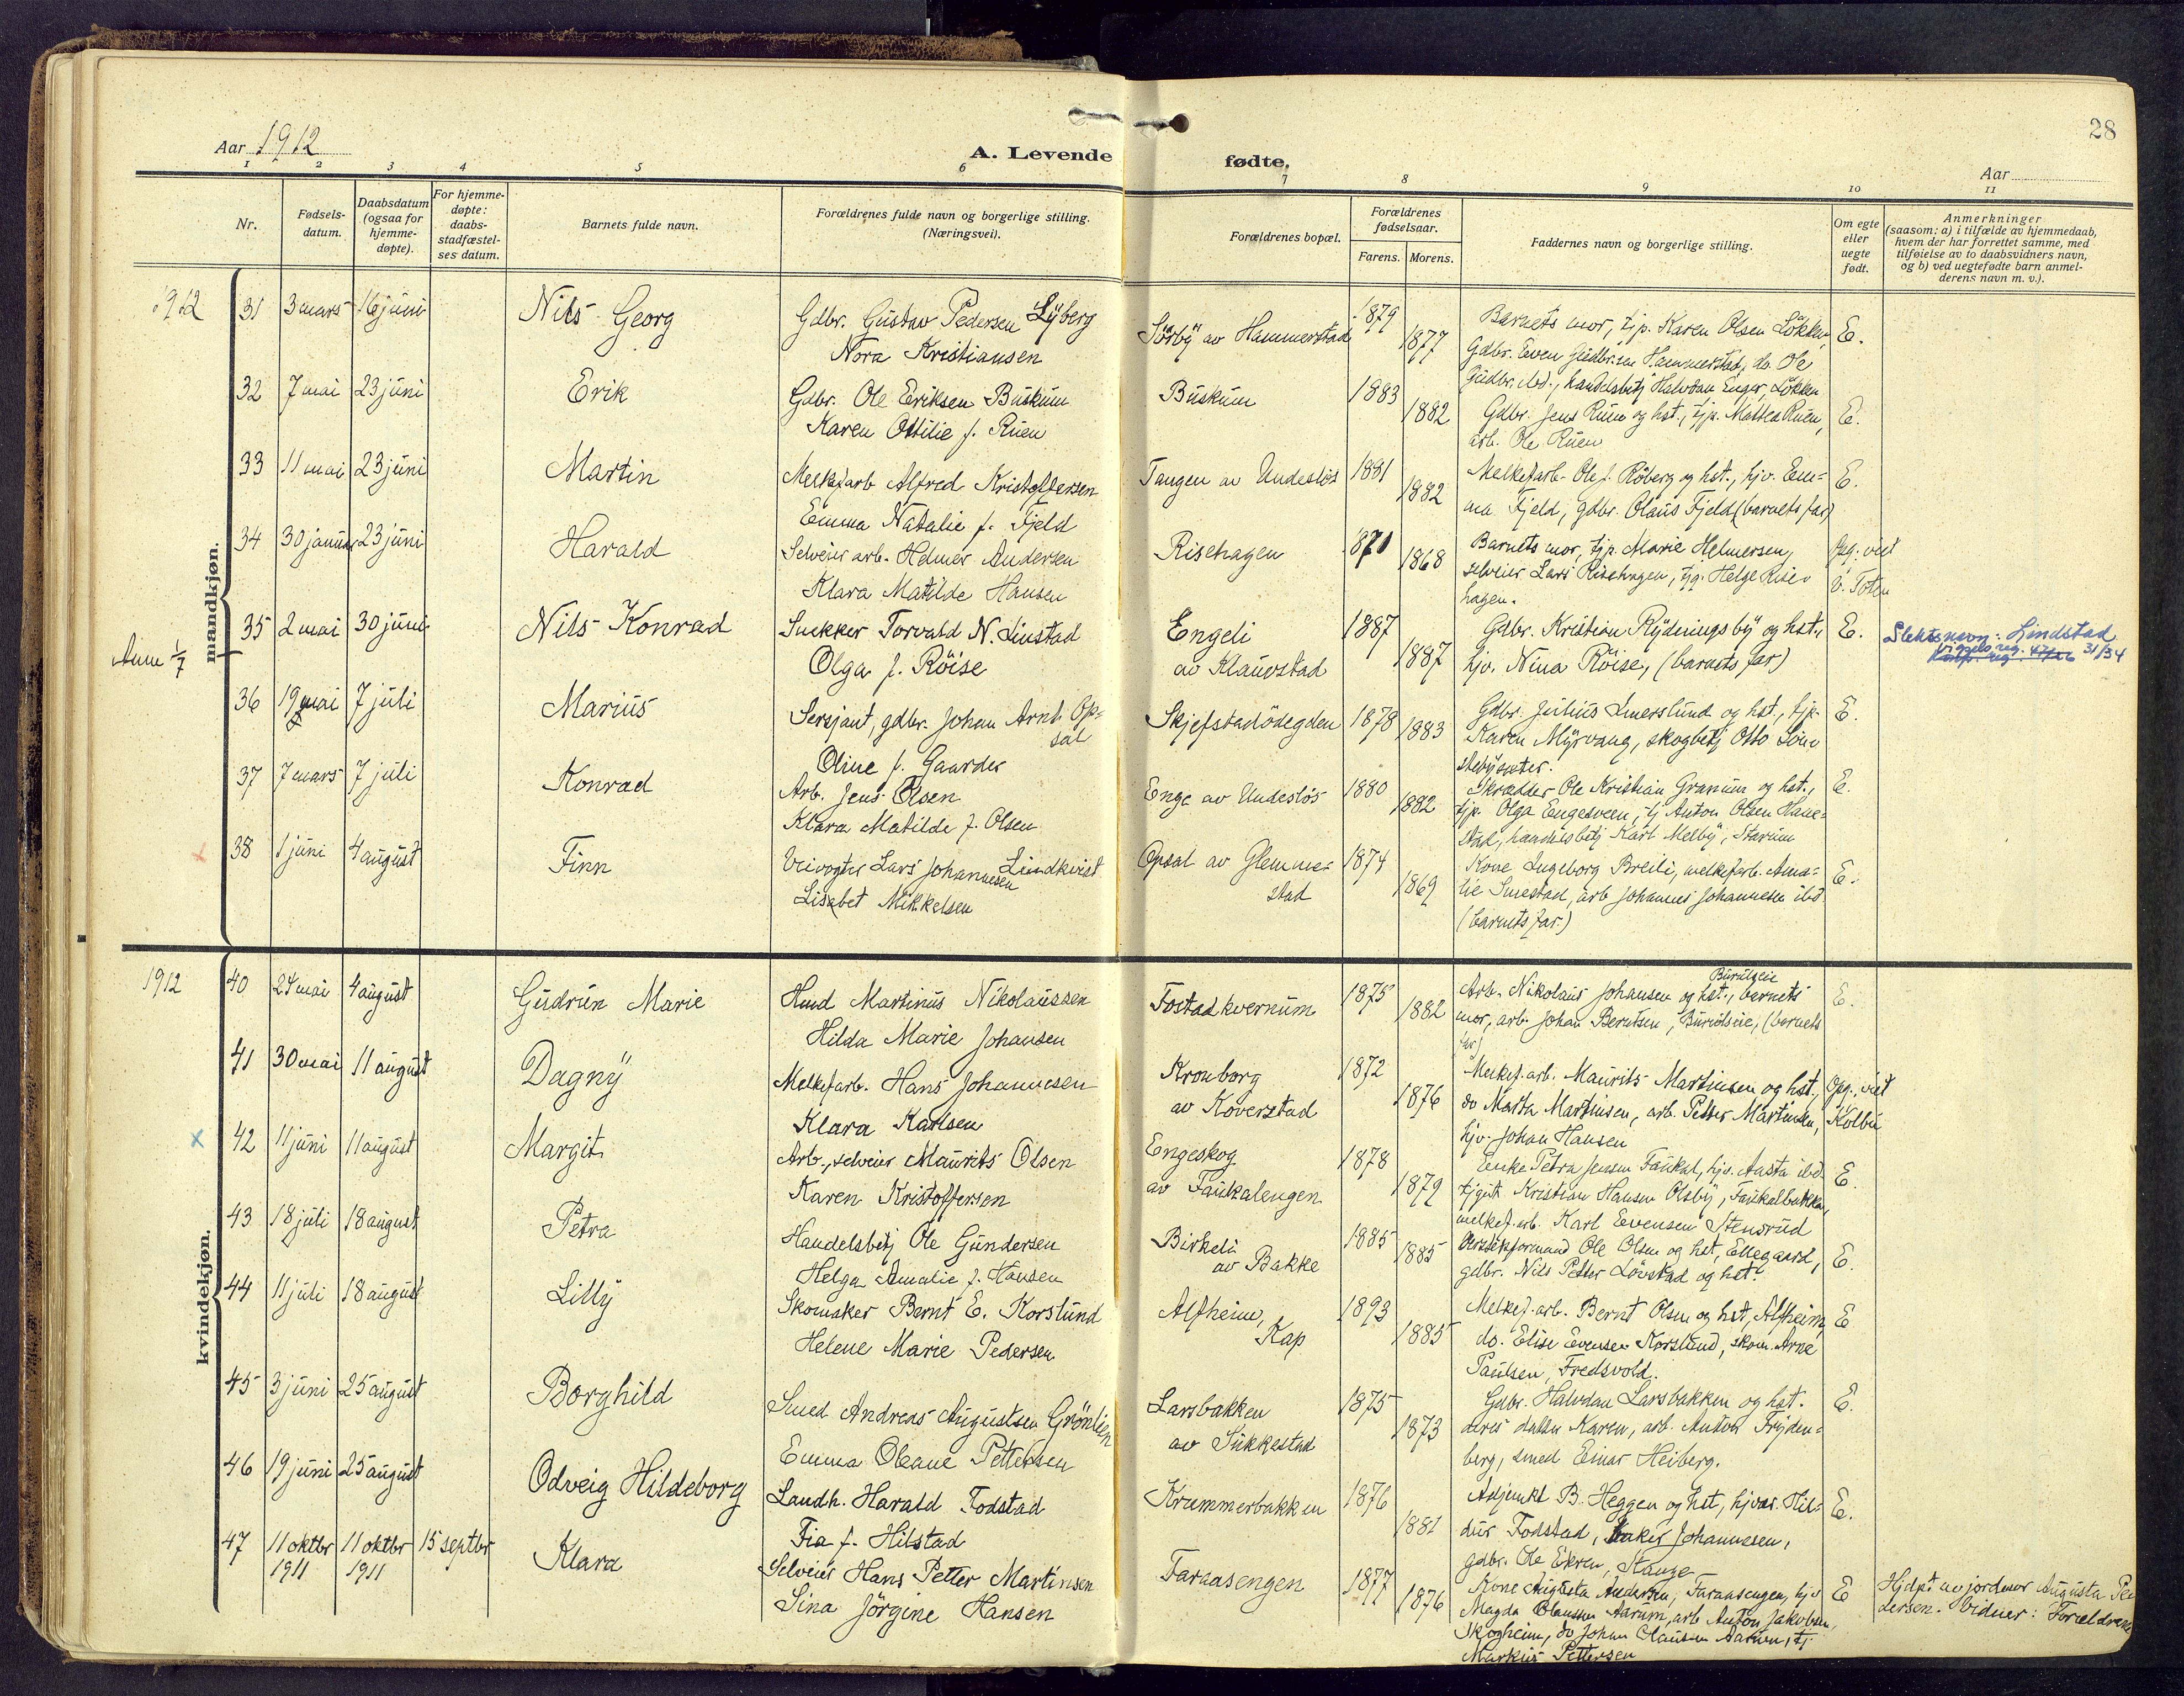 28
Aar 1912
A. Levende fødte.
Aar
1 2 3 4 5 6 7 8 9 10 11
Nr.
Fødsels-
datum.
Daabsdatum
(ogsaa for
hjemme-
døpte).
For hjemme-
døpte:
daabs-
stadfæstel-
ses datum.
Barnets fulde navn.
Forældrenes fulde navn og borgerlige stilling.
(Næringsvei).
Forældrenes bopæl.
Forældrenes
fødselsaar.
Farens. Morens.
Faddernes navn og borgerlige stilling.
Om egte
eller
uegte
født.
Anmerkninger
(saasom: a) i tilfælde av hjemmedaab,
hvem der har forrettet samme, med
tilføielse av to daabsvidners navn,
og b) ved uegtefødte barn anmel-
derens navn m. v.).
mandkjøn.
1912 31 3 mars 16 juni Nils Georg
Gdbr. Gustav Pedersen Lyberg
Nora Kristiansen
Sörby av Hammerstad 1879 1877
Barnets mor, tjp. Karen Olsen Lökken,
Gdbr. Even Gudbrsen Hammerstad, do. Ole
Gudbr. ibd., handelsbetj Halvdan Enger, Lökken
E.
32 7 mai 23 juni Erik
Gdbr. Ole Eriksen Buskum
Karen Ottilie f. Ruen
Buskum 1883 1882
Gdbr. Jens Ruen og hst., tjp. Mathea Ruen,
arb. Ole Ruen
E.
33 11 mai 23 juni Martin
Melkefarb Alfred Kristoffersen
Emma Natalie f. Fjeld
Tangen av Undeslös 1881 1882
Melkefarb. Ole J. Röberg og hst., hjv. Em-
ma Fjeld, gdbr. Olaus Fjeld (barnets far)
E.
34 30 januar 23 juni Harald
Selveier arb. Helmer Andersen
Klara Matilde Hansen
Risehagen 1871 1868
Barnets mor, tjp. Marie Helmersen,
selveier Lars Risehagen, tjg. Helge Rise-
hagen.
Opg. viet
V. Toten
35 2 mai 30 juni Nils Konrad
Anm 1/7
Snekker Torvald N. Linstad
Olga f. Röise
Engeli
av Klaüvstad 1887 1887
Gdbr. Kristian Rydningsby og hst.,
hjv. Nina Röise, (barnets far)
E.
Slektsnavn: Lindstad
31/34
36 19 mai 7 juli Marius
Sersjant, gdbr. Johan Arnt Op-
sal
Oline f. Gaarder
Skjefstadödegden 1878 1883
Gdbr. Julius Smerslund og hst., tjp.
Karen Myrvang, skogbetj Otto
E.
37 7 mars 7 juli Konrad
Arb. Jens Olsen
Klara Matilde f. Olsen
Enge av Undeslös 1880 1882
Skrædder Ole Kristian Granum og hst.,
tjp. Olga Engesveen, tj Anton Olsen Hane-
stad, handelsbetj Karl Melby, Starum
E.
38 1 juni 4 august Finn
Veivogter Lars Johannesen Lundkvist
Lisabet Mikkelsen
Opsal av Glemme-
stad 1874 1869
Kone Ingeborg Breili, melkefarb. Ama-
lie Smestad, arb Johannes Johannesen ibd.
(barnets far.)
E.
kvindekjøn.
1912 40 24 mai 4 august Gudrun Marie
Hmd Martinus Nikolaussen
Hilda Marie Johansen
Fostadkvernum 1875 1882
Burulseie
Arb. Nikolaus Johansen og hst., barnets
mor, arb. Johan Berntsen, Burulseie, (barnets
far)
E.
41 30 mai 11 august Dagny
Melkefarb. Hans Johannesen
Klara Karlsen
Kronborg
av Koverstad 1872 1876
Melkef. arb. Maurits Martinsen og hst.,
do Marta Martinsen, arb. Petter Martinsen,
hjv. Johan Hansen
Opg. viet
Kolbu
42 11 juni 11 august Margit
Arb., selveier Maurits Olsen
Karen Kristoffersen
Engeskog
av Faukalengen 1878 1879
Enke Petra Jensen Faukal, hjv. Aasta ibd.
tjgut Kristian Hansen Olsby, Faukalbakken,
melkef. arb. Karl Evensen Stensrud
E.
43 18 juli 18 august Petra
Handelsbetj Ole Gundersen
Helga Amalie f. Hansen
Birkeli
av Bakke 1885 1885
Ole Olsen og hst, Ellegaard,
gdbr. Nils Petter Lövstad og hst.
E.
44 11 juli 18 august Lilly
Skomaker Bernt E. Korslund
Helene Marie Pedersen
Alfheim,
Kap 1893 1885
Melkef. arb. Bernt Olsen og hst, Alfheim,
do. Elise Evensen Korslund, skom. Arne
Paulsen, Fredsvold.
E
45 3 juni 25 august Borghild
Smed Andreas Augustsen Grönlien
Emma Oleane Pettersen
Larsbakken
av Sukkestad 1875 1873
Gdbr. Halvdan Larsbakken og hst.
deres datter Karen, arb. Anton Fryden-
berg, smed Einar Heiberg.
E.
46 19 juni 25 august Odveig Hildeborg
Landh. Harald Fodstad
Fia f. Hilstad
Krammerbakken 1876 1881
Adjunkt B. Heggen og hst, hjvær. Hil-
dur Fodstad, baker Johannesen,
gdbr. Ole Ekren, Stange
E.
47 11 oktbr 1911 11 oktbr 1911 15 septbr Klara
Selveier Hans Petter Martinsen
Sina Jörgine Hansen
Faraasengen 1877 1876
Kone Augusta Andersen, Faraasengen, hjv
Magda Olaussen Aarum, arb Anton Jakobsen,
Skogheim, do Johan Clausen Aarum, tj.
Markus Pettersen
E
Hjdpt av jordmor Augusta Pe-
dersen. Vidner: Forældrene